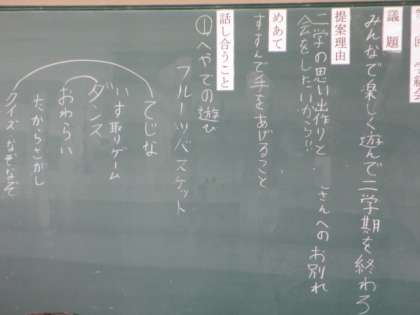 議題
みんなで楽しく遊んで二学期を終わろう
提案理由
二学の思い出作りと さんへのお別れ
会をしたいから!!
めあて
すすんで手をあげること
話し合うこと
①へやでの遊び
フルーツバスケット
てじな
いす取りゲーム
ダンス
おわらい
たからさがし
クイズ なぞなぞ